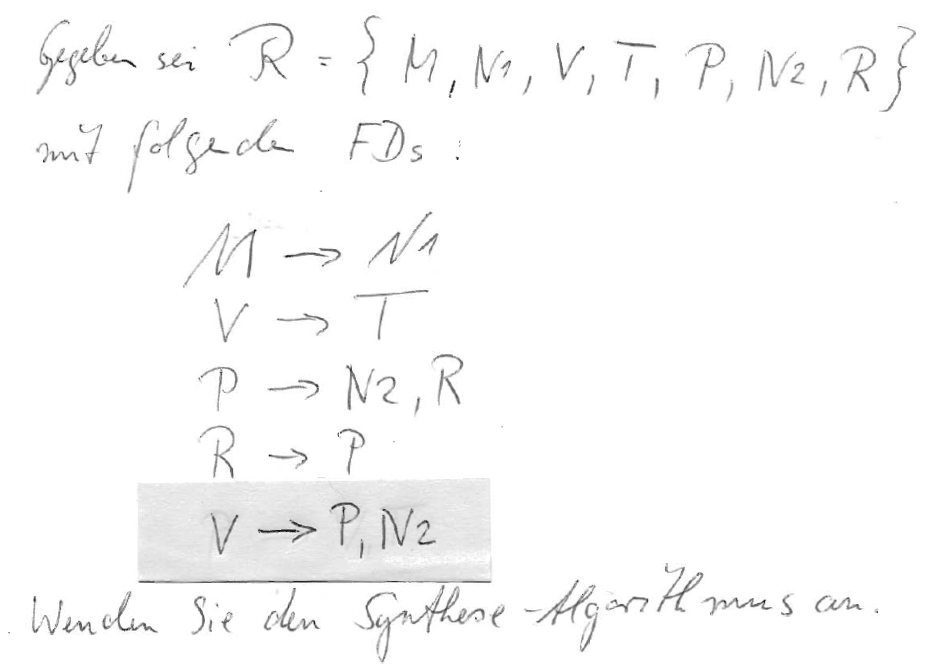 Gegeben sei R = { M, N1, V, T, P, N2, R }
mit folgenden FDs :
M → N1
V → T
P → N2, R
R → P
V → P, N2
Wenden Sie den Synthese-Algorithmus an.